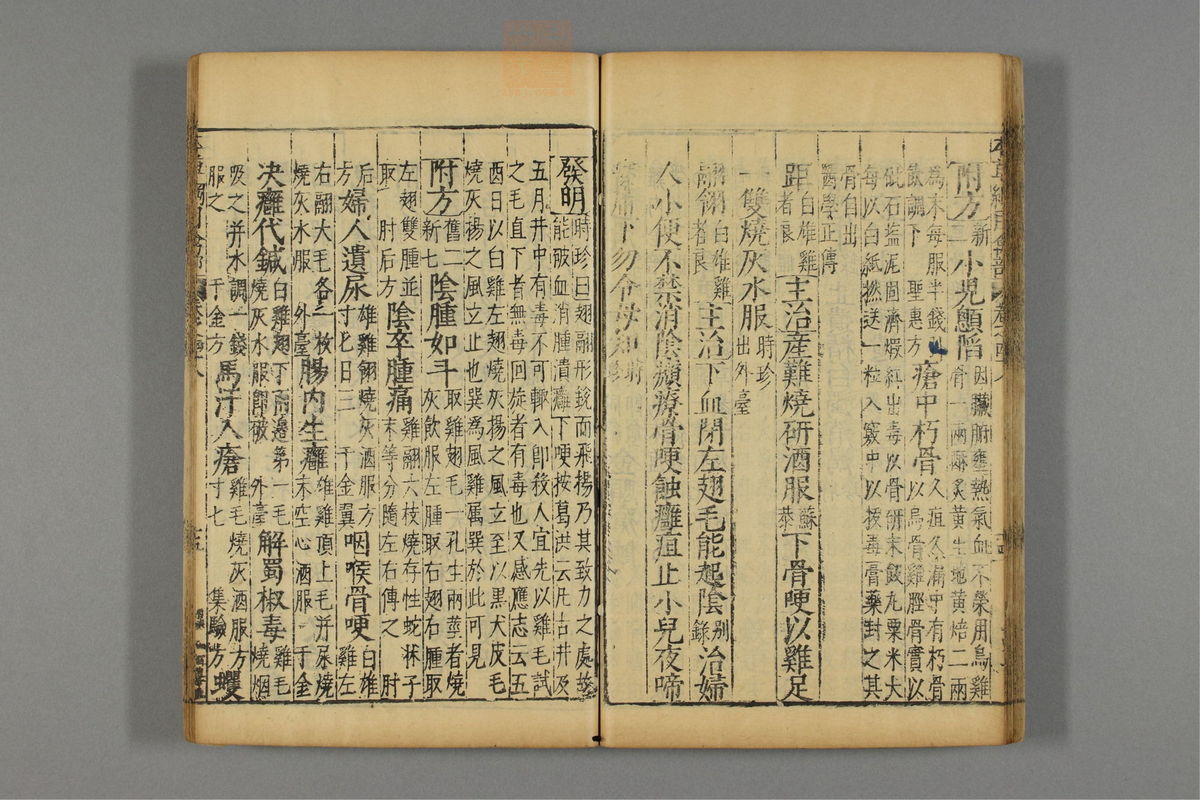 附方新二小兒顖陷因臟腑壅熱氣血不榮用烏雞骨一兩酥炙黃生地黃焙二兩
為末每服半錢粥飲調下 聖惠方瘡中朽骨久疽久漏中有朽骨以烏骨雞脛骨實以
砒石塩泥固濟煆紅出毒以骨研末飯丸粟米大每以白紙撚送一粒入竅中以拔毒膏藥封之其
骨自出 醫學正傳
距白雄雞者良主治產難燒研酒服蘇恭下骨哽以雞足
一雙燒灰水服時珍出外臺
翮翎白雄雞者良主治下血閉左翅毛能起陰別錄治婦
人小便不禁消陰㿗療骨哽蝕癰疽止小兒夜啼
下勿令母知時
發明時珍曰翅翮形銳而飛揚乃其致力之處故能破血消腫潰癰下哽按葛洪云凡古井及
五月井中有毒不可輒入卽殺人宜先以雞毛試之毛直下者無毒回旋者有毒也又感應志云五
酉日以白雞左翅燒灰揚之風立至以黑犬皮毛燒灰揚之風立止也巽為風雞屬巽於此可見
附方舊二新七陰腫如斗取雞翅毛一孔生兩莖者燒灰飲服左腫取右翅右腫取
左翅雙腫並取 肘后方陰卒腫痛雞翮六枝燒存性蛇牀子末等分隨左右傅之 肘
后方婦人遺尿雄雞翎燒灰酒服方寸匕日三 千金翼咽喉骨哽白雄雞左
右翮大毛各一枚燒灰水服 外臺腸內生癰雄雞頂上毛并屎燒末空心酒服 千金
決癰代鍼白雞翅下兩邊第一毛燒灰水服卽破 外臺解蜀椒毒雞毛燒烟
吸之并水調一錢服之 千金方馬汗入瘡雞毛燒灰酒服方寸七 集驗方蠼